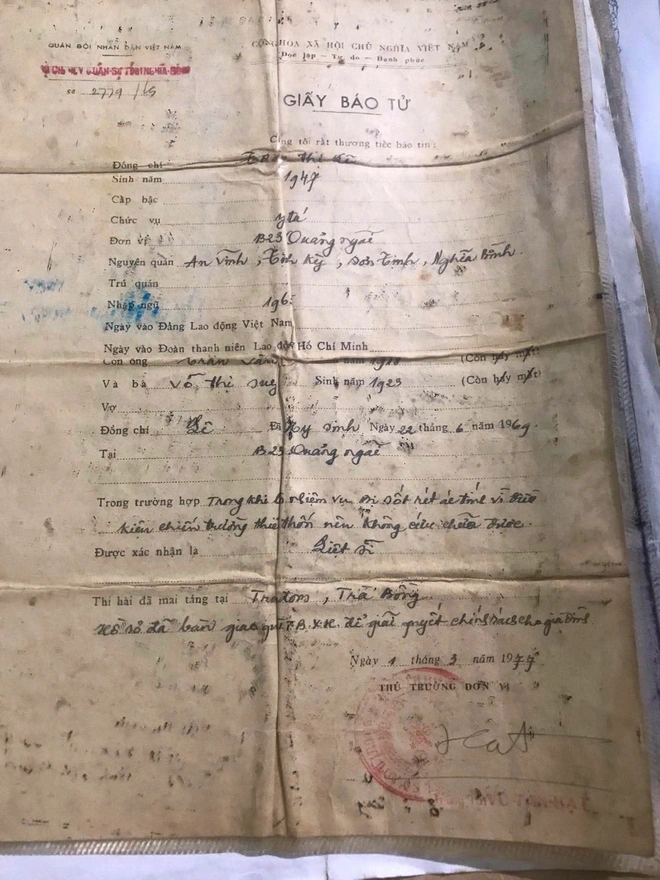 QUÂN ĐỘI NHÂN DÂN VIỆT NAM
BỘ CHỈ HUY QUÂN SỰ TỈNH NGHĨA BÌNH
Số 2779 /LS
CỘNG HÒA XÃ HỘI CHỦ NGHĨA VIỆT NAM
Độc lập — Tự do — Hạnh phúc
GIẤY BÁO TỬ
Chúng tôi rất thương tiếc báo tin :
Đồng chí Thị
Sinh năm 1947
Cấp bậc
Chức vụ y tá
Đơn vị B23 Quảng ngãi
Nguyên quán An Vĩnh, Tịnh Kỳ, Sơn Tịnh, Nghĩa Bình
Trú quán
Nhập ngũ 196
Ngày vào Đảng Lao động Việt Nam
Ngày vào Đoàn thanh niên Lao động Hồ Chí Minh
Con ông Trần Văn năm 1918 (Còn hay mất)
Và bà Võ thị Sinh năm 1923 (Còn hay mất)
Vợ
Đồng chí Đã hy sinh Ngày 22 tháng 6 năm 1969
Tại B23 Quảng ngãi
Trong trường hợp Trong khi nhiệm vụ bị sốt rét ác tính vì điều
kiện chiến trường thiếu thốn nên không cứu chữa được.
Được xác nhận là Liệt sĩ
Thi hài đã mai táng tại Tratom, Trà Bồng
Hồ sơ đã bàn giao để giải quyết chính sách cho gia đình
Ngày 1 tháng 3 năm 1977
THỦ TRƯỞNG ĐƠN VỊ